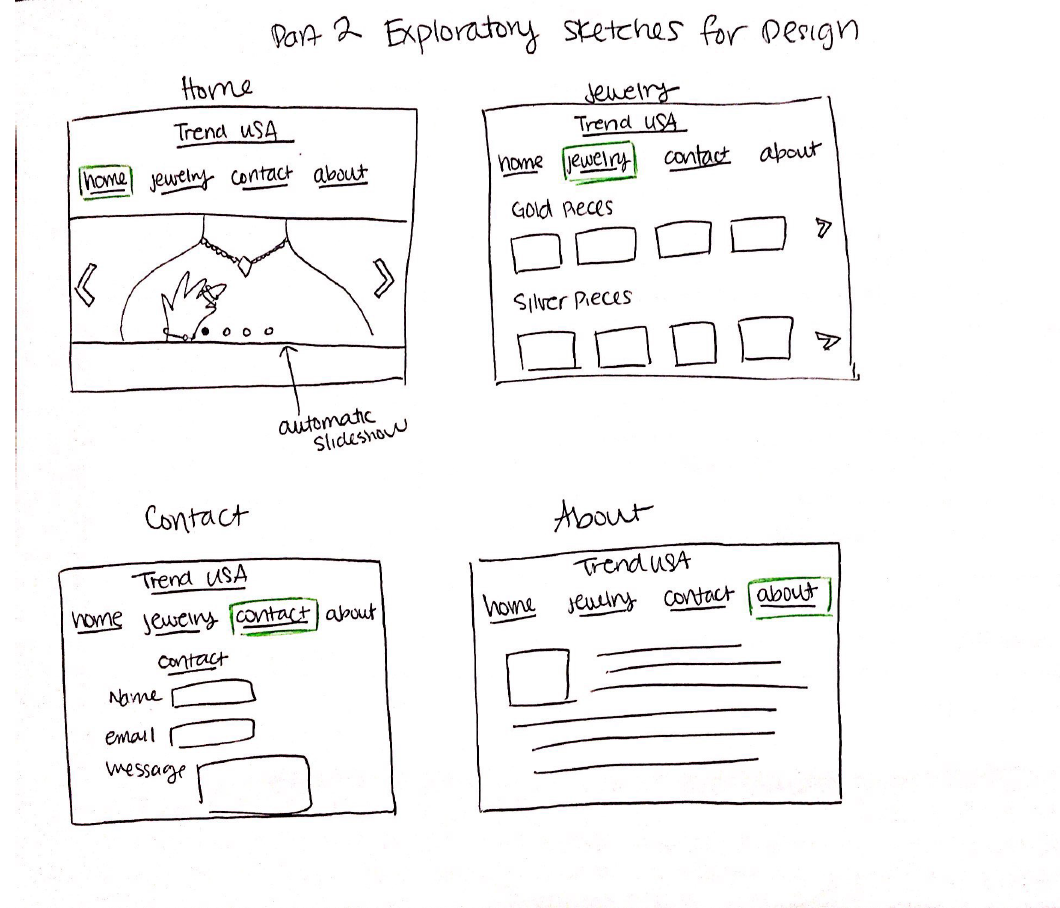 Part 2 Exploratory Sketches for Design
Home
Trend USA
home jewelry contact about
automatic
slideshow
Jewelry
Trend USA
home jewelry contact about
Gold Pieces
Silver Pieces
Contact
Trend USA
home jewelry contact about
contact
Name
email
message
About
Trend USA
home jewelry contact about